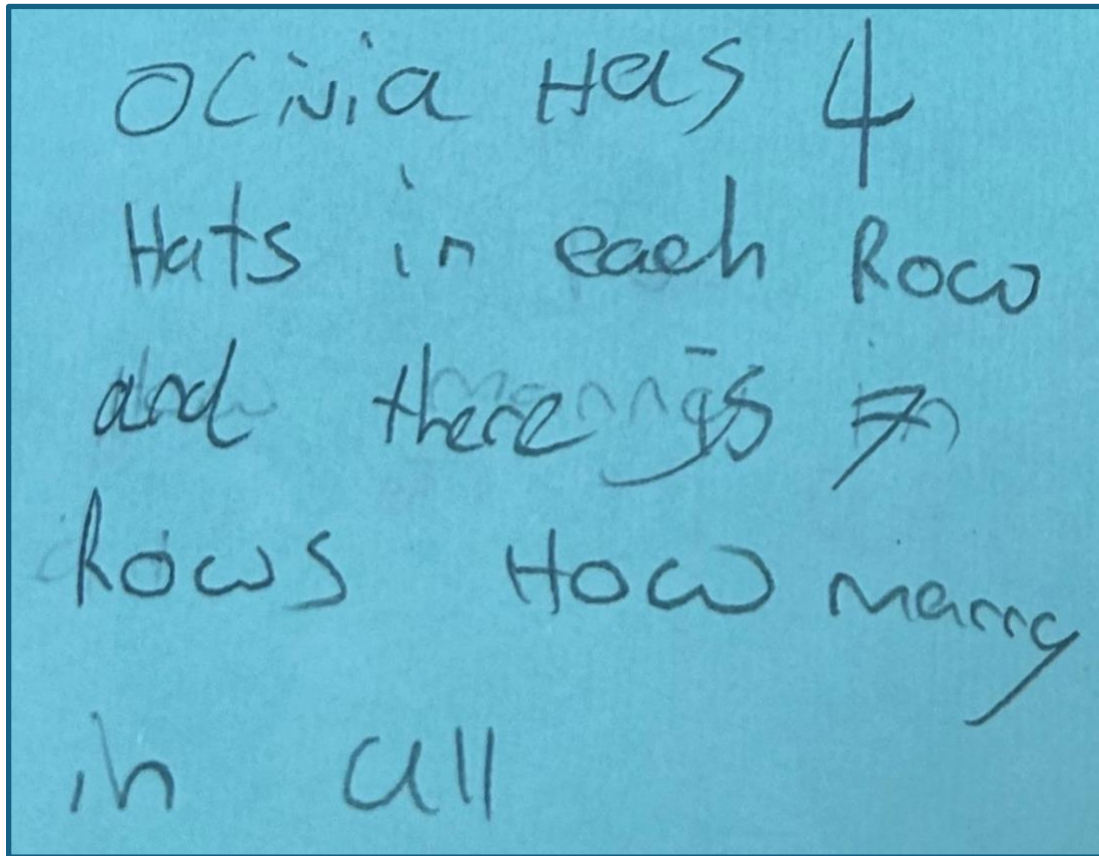 Olivia Has 4
Hats in each Row
and there is 7
Rows How many
in all